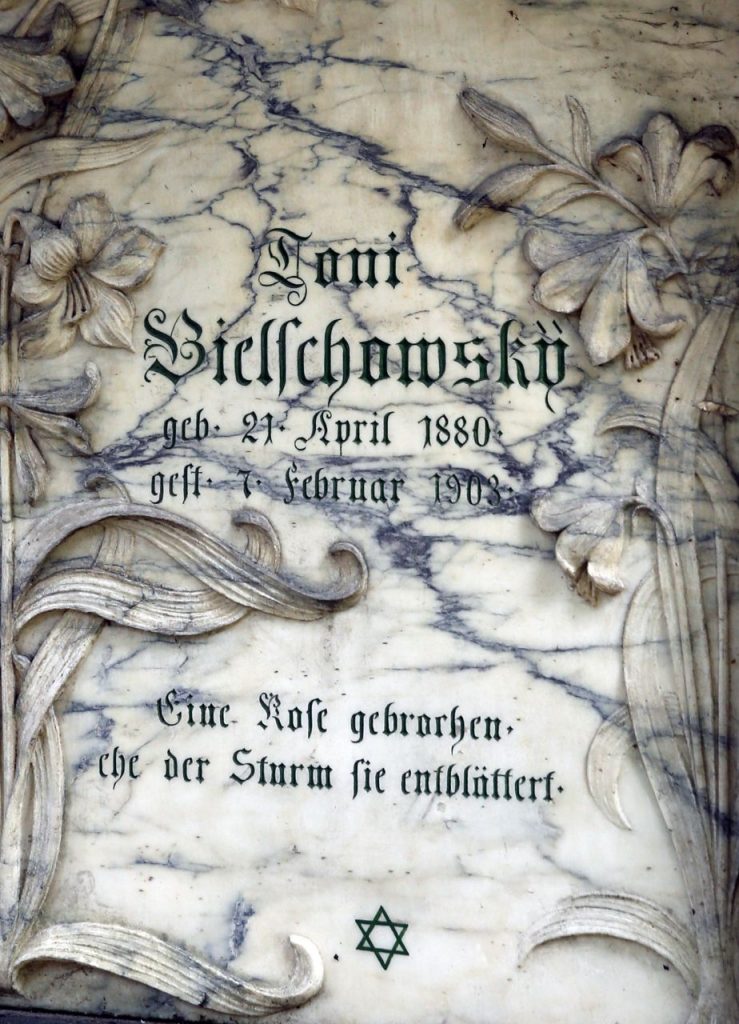 Toni
Bielſchowskÿ
geb. 21. April 1880.
geſt. 7. Februar 1903.
Eine Roſe gebrochen.
ehe der Sturm ſie entblättert.